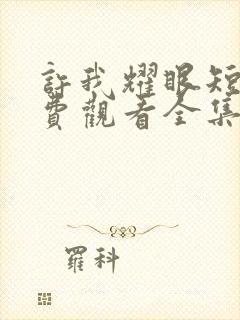 許我耀眼短
費觀看全集
羅科